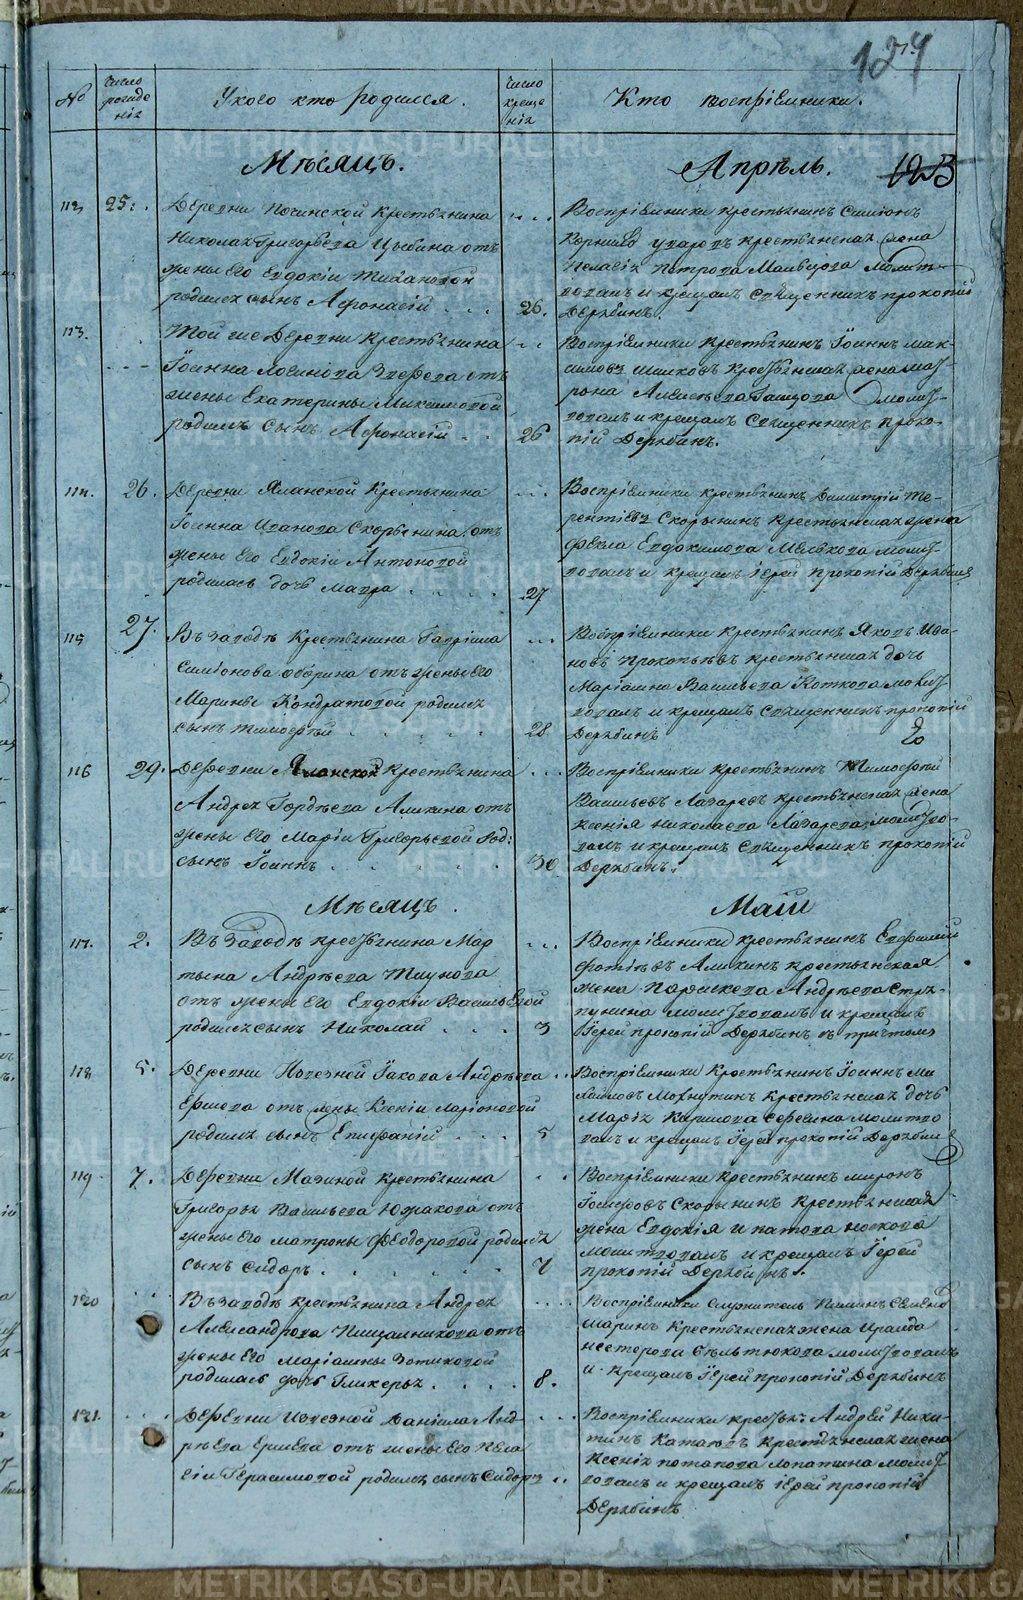 124
№
Число рожде нія
У кого кто родился.
Число креще нія
Кто воспріемники.
Мѣсяцъ.
Апрѣль.
123
112. 25.
Деревни Починской Крестьянина
Николая Григорьева Цыбина отъ
жены его Евдокіи
родился сынъ Афонасій 26.
Воспріемники крестьянинъ Симіонъ
крестьянская жена
Пелагія Петрова молит-
вовалъ и крещалъ Священникъ Прокопій
Дерябинъ.
113.
Той же Деревни Крестьянина
Іоанна Логинова отъ
жены Екатерины Максимовой
родился сынъ Афонасій 26
Воспріемники крестьянинъ Іоаннъ Мак-
симовъ крестьянская жена Мат-
рона молит-
вовалъ и крещалъ Священникъ Проко-
пій Дерябинъ.
114. 26.
Деревни Яланской Крестьянина
Іоанна Иванова Скорынина отъ
жены его Евдокіи Антоновой
родилась дочь Мавра 27
Воспріемники крестьянинъ Димитрій Те-
рентіевъ Скорынинъ крестьянская жена
Фекла Евдокимова Мелькова молит-
вовалъ и крещалъ Іерей Прокопій Дерябинъ
115 27.
Въ Заводѣ Крестьянина Гавріила
Симіонова отъ жены его
Марины Кондратовой родился
сынъ Тимофей 28
Воспріемники крестьянинъ Яковъ Ива-
новъ Прокопьевъ крестьянская дочь
Маріамна Васильева Коткова молит-
вовалъ и крещалъ Священникъ Прокопій
Дерябинъ
116 29.
Деревни Яланской Крестьянина
Андрея Гордѣева Аликина отъ
жены его Маріи Григорьевой род:
сынъ Іоаннъ 30
Воспріемники крестьянинъ Тимофей
Васильевъ Лазаревъ крестьянская жена
Ксенія Николаева Лазарева молитво-
валъ и крещалъ Священникъ Прокопій
Дерябинъ.
Мѣсяцъ.
Маій
117. 2.
Въ Заводѣ крестьянина Мар
тына Андрѣева Тиунова
отъ жены его Евдокіи Васильевой
родился сынъ Николай 3
Воспріемники крестьянинъ Евфимій
Фотіевъ Аликинъ крестьянская
жена Параскева Андрѣева Стря-
пунина молитвовалъ и крещалъ
Іерей Прокопій Дерябинъ съ причтомъ
118 5.
Деревни Іакова Андрѣева
Ершева отъ жены Ксеніи Ларіоновой
родился сынъ Епифаній 5
Воспріемники Крестьянинъ Іоаннъ Ми
хайловъ крестьянская дочь
Марія молитво
валъ и крещалъ Іерей Прокопій Дерябинъ
119 7.
Деревни Мазиной Крестьянина
Григорья Васильева Южакова отъ
жены его Матроны Феодоровой родился
сынъ Сидоръ 7
Воспріемники крестьянинъ Миронъ
Скорынинъ крестьянская
жена Евдокія
молитвовалъ и крещалъ Іерей
Прокопій Дерябинъ.
120
Въ заводѣ крестьянина Андрея
Александрова Пищальникова отъ
жены его Маріамны Зотиковой
родилась дочь Гликерья 8.
Воспріемники служитель
Маринъ крестьянская жена Ираида
Несторова молитвовалъ
и крещалъ Іерей Прокопій Дерябинъ
121.
Деревни Даніила Анд-
рѣева Ершева отъ жены его Пела
гіи Герасимовой родился сынъ Сидоръ
Воспріемники крестьян. Андрей Ники-
тинъ Катаевъ крестьянская жена
Ксенія Потапова Лопатина молит-
вовалъ и крещалъ Іерей Прокопій
Дерябинъ
METRIKI.GASO-URAL.RU